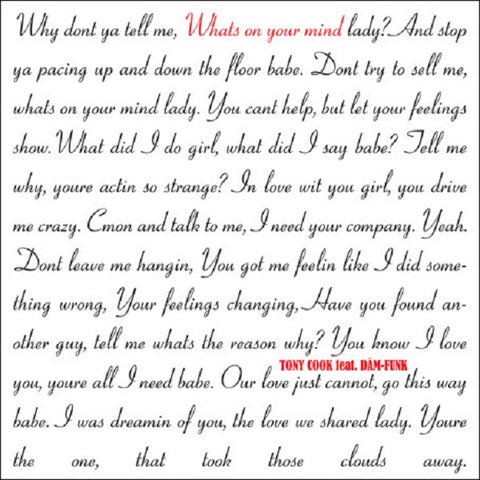 Why dont ya tell me, Whats on your mind lady? And stop
ya pacing up and down the floor babe. Dont try to sell me,
whats on your mind lady. You cant help, but let your feelings
show. What did I do girl, what did I say babe? Tell me
why, youre actin so strange? In love wit you girl, you drive
me crazy. Cmon and talk to me, I need your company. Yeah.
Dont leave me hangin, You got me feelin like I did some-
thing wrong, Your feelings changing, Have you found an-
other guy, tell me whats the reason why? You know I love
TONY COOK feat. DÂM-FUNK
you, youre all I need babe. Our love just cannot, go this way
babe. I was dreamin of you, the love we shared lady. Youre
the one, that took those clouds away.